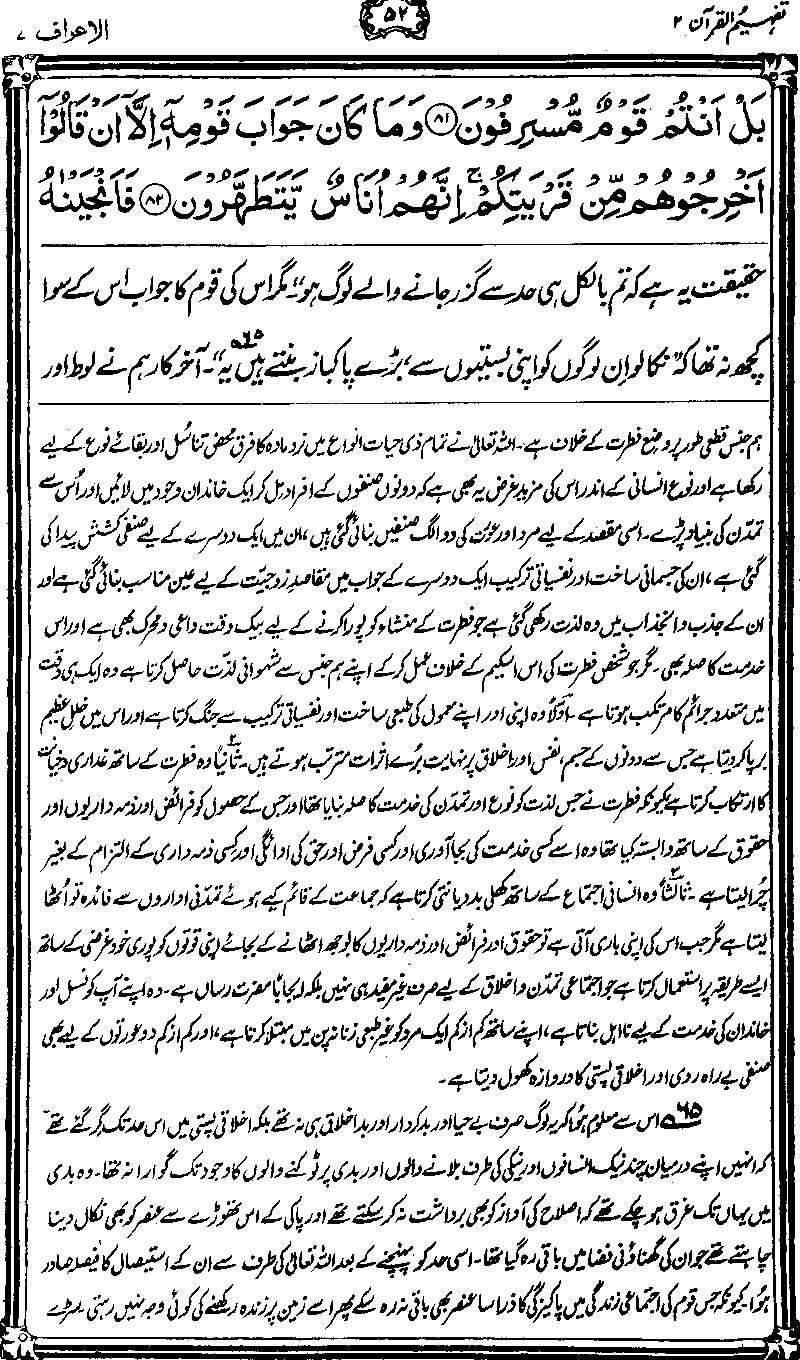 تفہیم القرآن ۲
۵۲
الاعراف ۷
بَلْ اَنْتُمْ قَوْمٌ مُّسْرِفُوْنَ ﴿۸۱﴾ وَمَا كَانَ جَوَابَ قَوْمِهٖۤ اِلَّاۤ اَنْ قَالُوْۤا
اَخْرِجُوْهُمْ مِّنْ قَرْيَتِكُمْ ۚ اِنَّهُمْ اُنَاسٌ يَّتَطَهَّرُوْنَ ﴿۸۲﴾ فَاَنْجَيْنٰهُ
حقیقت یہ ہے کہ تم بالکل ہی حد سے گزر جانے والے لوگ ہو“۔ مگر اس کی قوم کا جواب اس کے سوا
کچھ نہ تھا کہ ”نکالو ان لوگوں کو اپنی بستیوں سے، بڑے پاکباز بنتے ہیں یہ“۶۵۔ آخر کار ہم نے لوط اور
ہم جنس قطعی طور پر وضعِ فطرت کے خلاف ہے۔ اللہ تعالیٰ نے تمام ذی حیات انواع میں نر و مادہ کا فرق محض تناسُل اور بقائے نوع کے لیے
رکھا ہے اور نوعِ انسانی کے اندر اس کی مزید غرض یہ بھی ہے کہ دونوں صنفوں کے افراد مل کر ایک خاندان وجود میں لائیں اور اُس سے
تمدّن کی بنیاد پڑے۔ اسی مقصد کے لیے مرد اور عورت کی دو الگ صنفیں بنائی گئی ہیں، ان میں ایک دوسرے کے لیے صنفی کشش پیدا کی
گئی ہے، ان کی جسمانی ساخت اور نفسیاتی ترکیب ایک دوسرے کے جواب میں مقاصدِ زوجیّت کے لیے عین مناسب بنائی گئی ہے اور
ان کے جذب و انجذاب میں وہ لذت رکھی گئی ہے جو فطرت کے منشاء کو پورا کرنے کے لیے بیک وقت داعی و محرک بھی ہے اور اس
خدمت کا صلہ بھی۔ مگر جو شخص فطرت کی اس اسکیم کے خلاف عمل کر کے اپنے ہم جنس سے شہوانی لذّت حاصل کرتا ہے وہ ایک ہی وقت
میں متعدد جرائم کا مرتکب ہوتا ہے۔ اوّلاً وہ اپنی اور اپنے معمول کی طبعی ساخت اور نفسیاتی ترکیب سے جنگ کرتا ہے اور اس میں خللِ عظیم
برپا کر دیتا ہے جس سے دونوں کے جسم، نفس اور اخلاق پر نہایت بُرے اثرات مترتب ہوتے ہیں۔ ثانیاً وہ فطرت کے ساتھ غداری و خیانت
کا ارتکاب کرتا ہے کیونکہ فطرت نے جس لذت کو نوع اور تمدّن کی خدمت کا صلہ بنایا تھا اور جس کے حصول کو فرائض اور ذمہ داریوں اور
حقوق کے ساتھ وابستہ کیا تھا وہ اسے کسی خدمت کی بجا آوری اور کسی فرض اور حق کی ادائگی اور کسی ذمہ داری کے التزام کے بغیر
چُرا لیتا ہے۔ ثالثاً وہ انسانی اجتماع کے ساتھ کھلی بد دیانتی کرتا ہے کہ جماعت کے قائم کیے ہوئے تمدّنی اداروں سے فائدہ تو اُٹھا
لیتا ہے مگر جب اس کی اپنی باری آتی ہے تو حقوق اور فرائض اور ذمہ داریوں کا بوجھ اٹھانے کے بجائے اپنی قوتوں کو پوری خود غرضی کے ساتھ
ایسے طریقہ پر استعمال کرتا ہے جو اجتماعی تمدن و اخلاق کے لیے صرف غیر مفید ہی نہیں بلکہ ایجاباً مضرت رساں ہے۔ وہ اپنے آپ کو نسل اور
خاندان کی خدمت کے لیے نا اہل بناتا ہے، اپنے ساتھ کم از کم ایک مرد کو غیر طبعی زنانہ پن میں مبتلا کرتا ہے، اور کم از کم دو عورتوں کے لیے بھی
صنفی بے راہ روی اور اخلاقی پستی کا دروازہ کھول دیتا ہے۔
۶۵ اس سے معلوم ہُوا کہ یہ لوگ صرف بے حیا اور بد کردار اور بد اخلاق ہی نہ تھے بلکہ اخلاقی پستی میں اس حد تک گر گئے تھے
کہ انہیں اپنے درمیان چند نیک انسانوں اور نیکی کی طرف بلانے والوں اور بدی پر ٹوکنے والوں کا وجود تک گوارا نہ تھا۔ وہ بدی
میں یہاں تک غرق ہو چکے تھے کہ اصلاح کی آواز کو بھی برداشت نہ کر سکتے تھے اور پاکی کے اس تھوڑے سے عنصر کو بھی نکال دینا
چاہتے تھے جو ان کی گھناؤنی فضا میں باقی رہ گیا تھا۔ اسی حد کو پہنچنے کے بعد اللہ تعالیٰ کی طرف سے ان کے استیصال کا فیصلہ صادر
ہُوا۔ کیونکہ جس قوم کی اجتماعی زندگی میں پاکیزگی کا ذرا سا عنصر بھی باقی نہ رہ سکے پھر اسے زمین پر زندہ رکھنے کی کوئی وجہ نہیں رہتی۔ سڑے